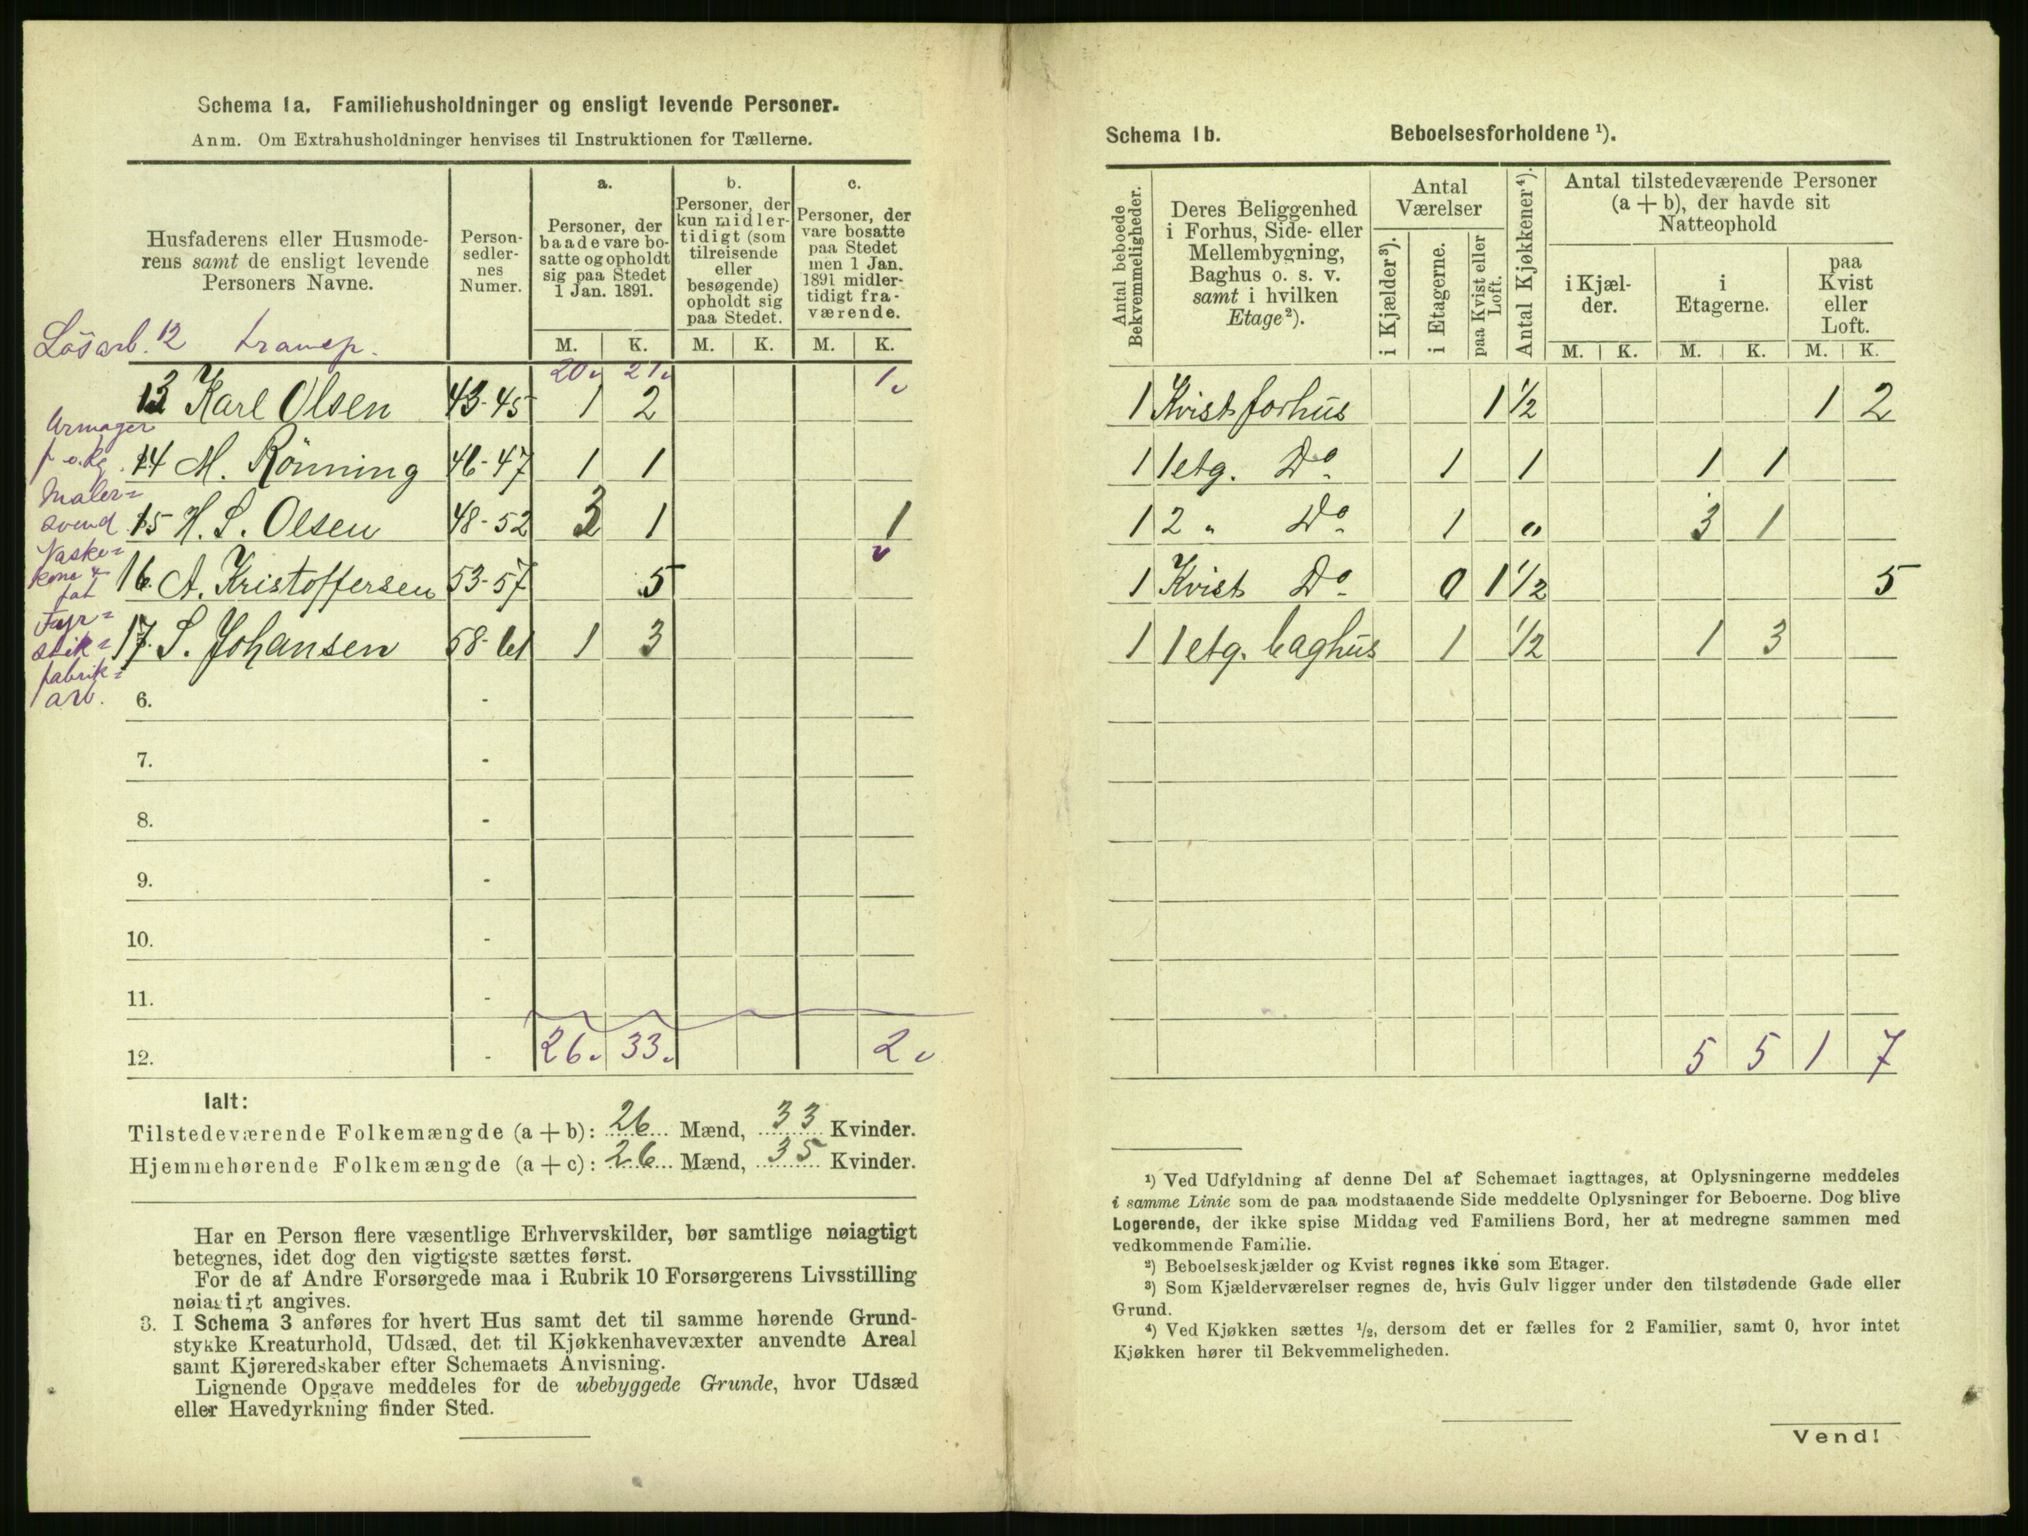 Schema 1a. Familiehusholdninger og ensligt levende Personer.
Anm. Om Extrahusholdninger henvises til Instruktionen for Tællerne.
Husfaderens eller Husmode-
rens samt de ensligt levende
Personers Navne.
Person-
sedler-
nes
Numer.
a.
Personer, der
baade vare bo-
satte og opholdt
sig paa Stedet
1 Jan. 1891.
b.
Personer, der
kun midler-
tidigt (som
tilreisende
eller
besøgende)
opholdt sig
paa Stedet.
c.
Personer, der
vare bosatte
paa Stedet
men 1 Jan.
1891 midler-
tidigt fra-
værende.
M. K. M. K. M. K.
Lösarb. 12 transp.
20 21 1
13 Karl Olsen 43-45 1 2
Urmager
14 M. Rönning 46-47 1 1
Maler=
svend
15 H. S. Olsen 48-52 3 1 1
Vaske=
kone
16. A. Kristoffersen 53-57 5
Fyr=
stik=
fabrik=
arb.
17. S. Johansen 58-61 1 3
6. -
7. -
8. -
9. -
10. -
11. -
12. - 26 33 2
Ialt:
Tilstedeværende Folkemængde (a + b): 26 Mænd, 33 Kvinder.
Hjemmehørende Folkemængde (a + c): 26 Mænd, 35 Kvinder.
Har en Person flere væsentlige Erhvervskilder, bør samtlige nøiagtigt
betegnes, idet dog den vigtigste sættes først.
For de af Andre Forsørgede maa i Rubrik 10 Forsørgerens Livsstilling
nøiagtigt angives.
3. I Schema 3 anføres for hvert Hus samt det til samme hørende Grund-
stykke Kreaturhold, Udsæd, det til Kjøkkenhavevæxter anvendte Areal
samt Kjøreredskaber efter Schemaets Anvisning.
Lignende Opgave meddeles for de ubebyggede Grunde, hvor Udsæd
eller Havedyrkning finder Sted.
Schema 1b. Beboelsesforholdene ¹).
Antal beboede
Bekvemmeligheder.
Deres Beliggenhed
i Forhus, Side- eller
Mellembygning,
Baghus o. s. v.
samt i hvilken
Etage²).
Antal
Værelser
i Kjælder³).
i Etagerne.
paa Kvist eller
Loft.
Antal Kjøkkener⁴).
Antal tilstedeværende Personer
(a + b), der havde sit
Natteophold
i Kjæl-
der.
i
Etagerne.
paa
Kvist
eller
Loft.
M. K. M. K. M. K.
1 Kvist forhus 1 1/2 1 2
1 1 etg. Do 1 1 1 1
1 2 " Do 1 0 3 1
1 Kvist Do 0 1 1/2 5
1 1 etg. baghus 1 1/2 1 3
5 5 1 7
¹) Ved Udfyldning af denne Del af Schemaet iagttages, at Oplysningerne meddeles
i samme Linie som de paa modstaaende Side meddelte Oplysninger for Beboerne. Dog blive
Logerende, der ikke spise Middag ved Familiens Bord, her at medregne sammen med
vedkommende Familie.
²) Beboelseskjælder og Kvist regnes ikke som Etager.
³) Som Kjælderværelser regnes de, hvis Gulv ligger under den tilstødende Gade eller
Grund.
⁴) Ved Kjøkken sættes 1/2, dersom det er fælles for 2 Familier, samt 0, hvor intet
Kjøkken hører til Bekvemmeligheden.
Vend!